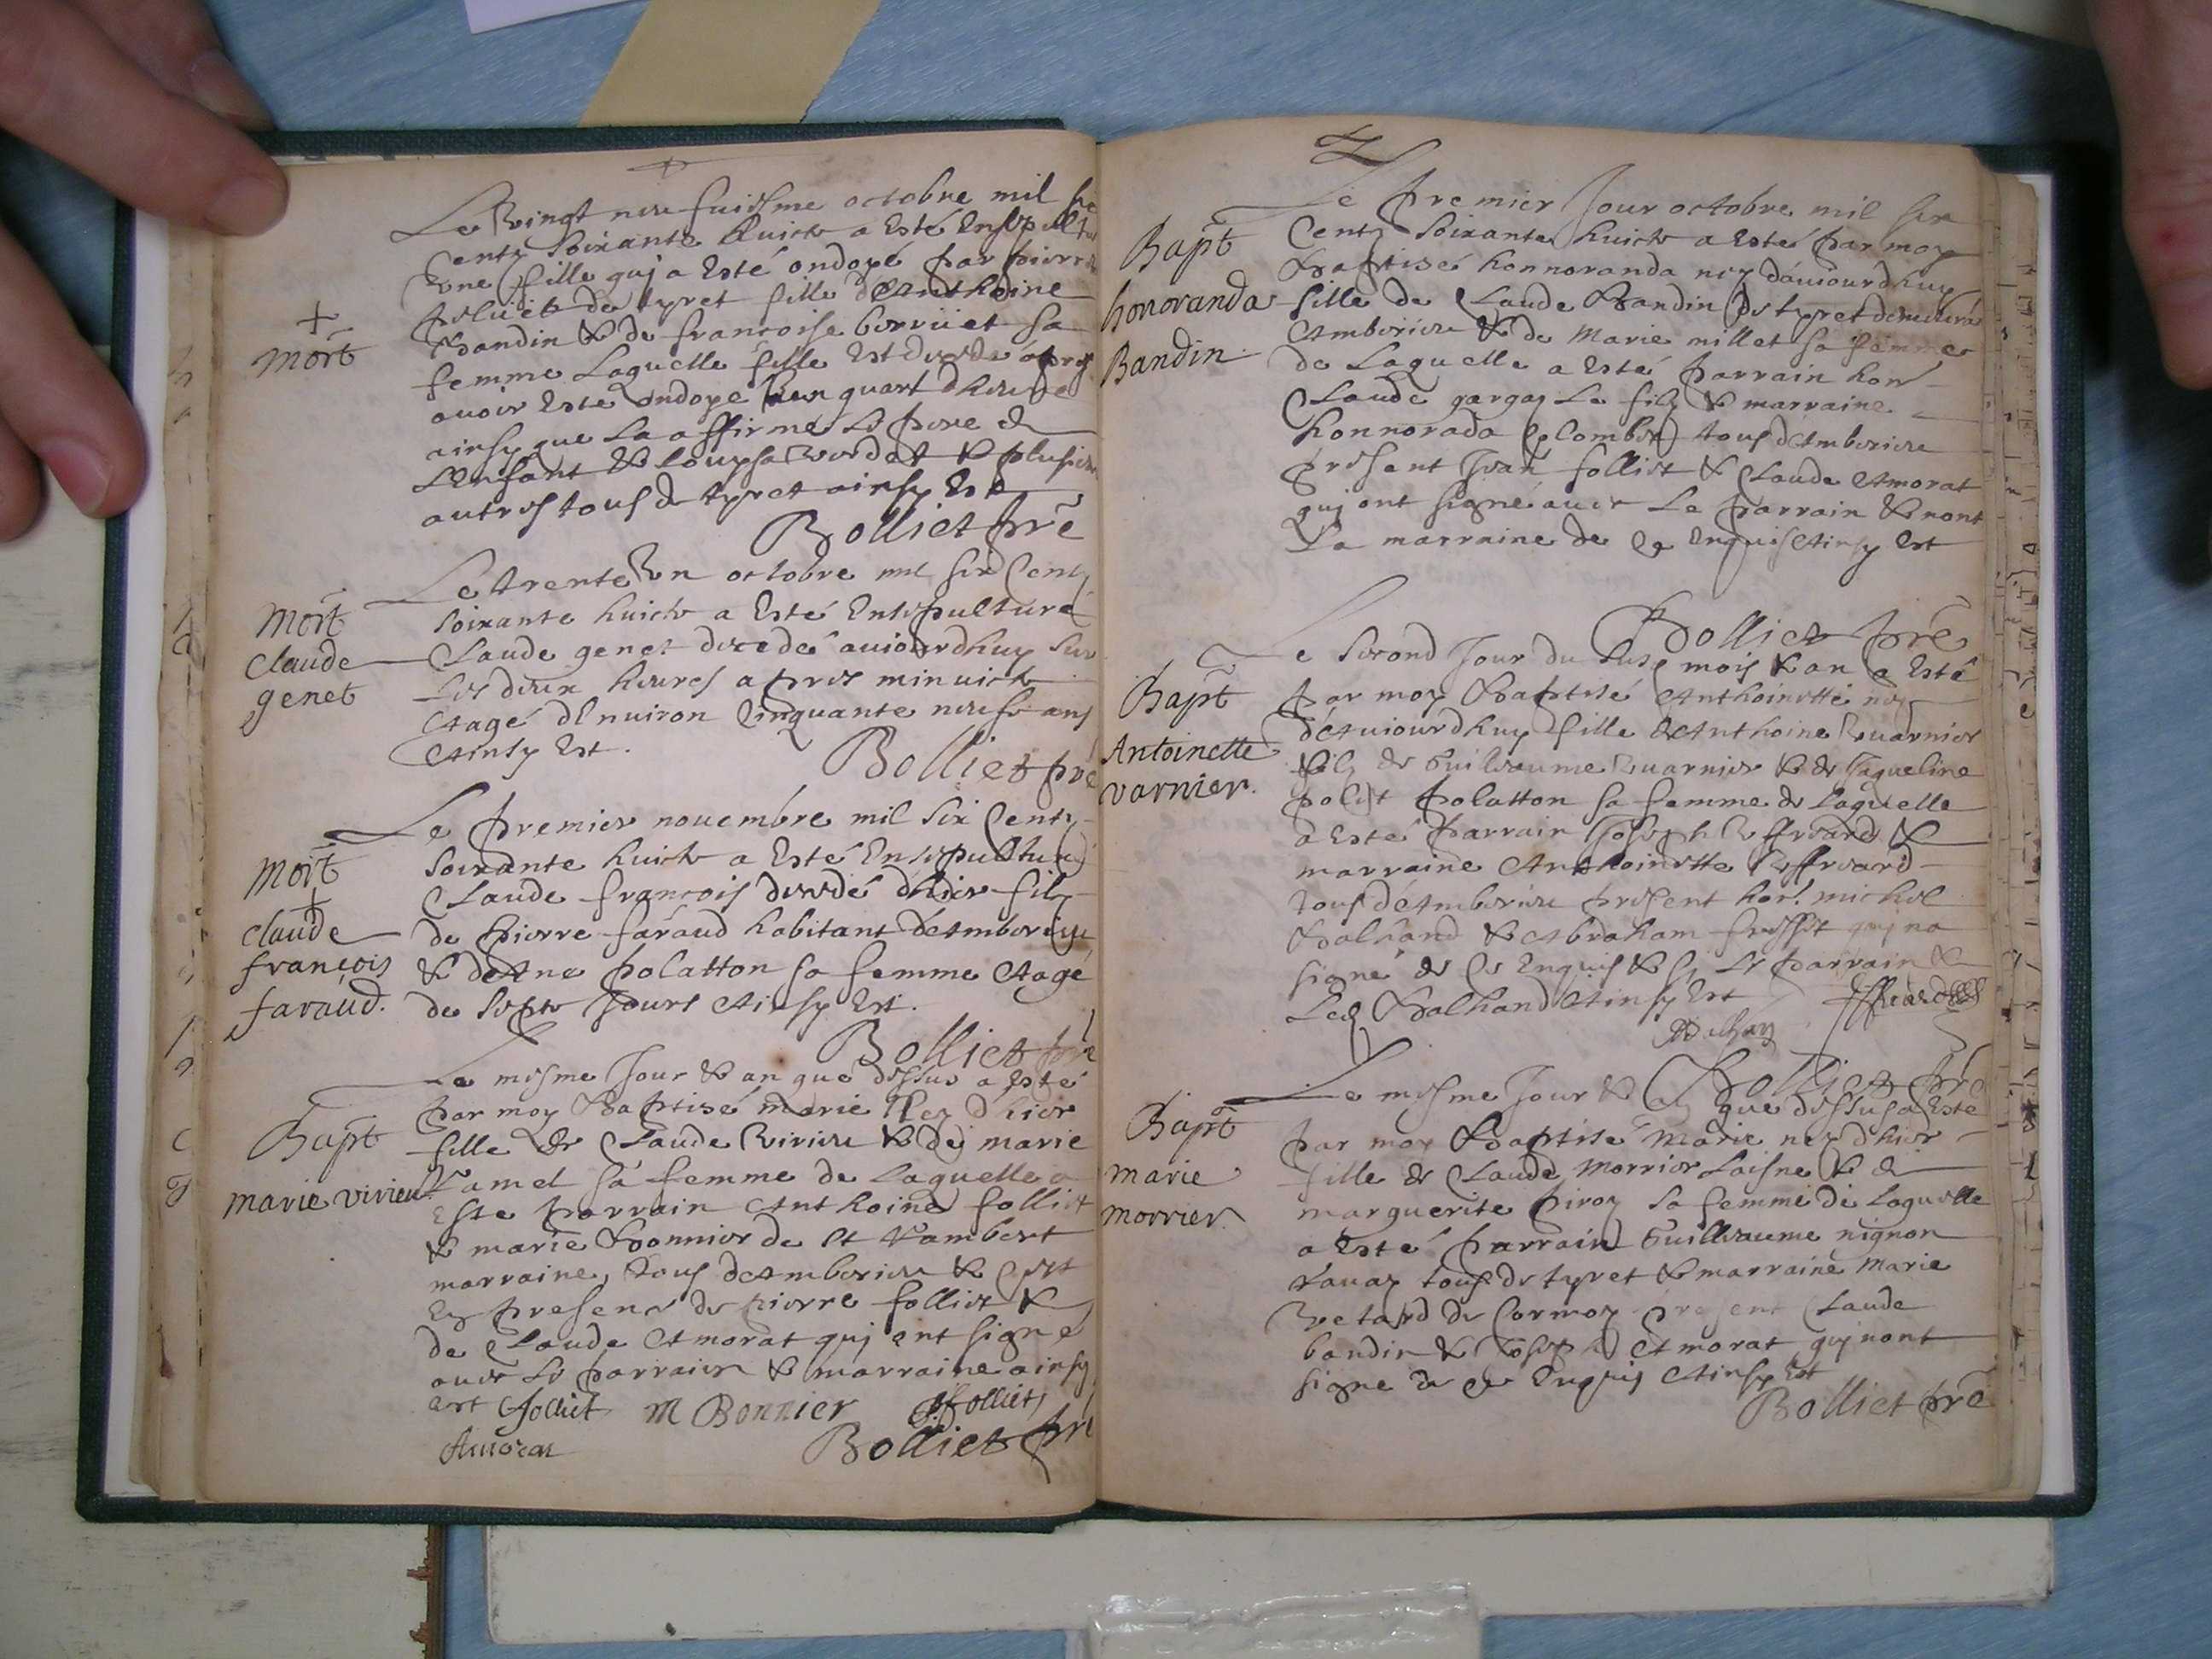 Le vingt neufuiesme octobre mil six
centz soixante huict a esté ensepultu
une fille quj a esté ondoyé par pierre
de tyret fille d'Anthoine
Bandin & de francoise borruet sa
femme Laquelle fille est decedé apres
avoir esté ondoyé un quart dheure
ainsy que la affirmé le pere de
L'enfant & & plusieurs
autres tous de tyret ainsy est
Bolliet pre
+
Mort
Le trente un octobre mil six centz
soixante huict a esté ensepulturé
Claude genet decedé auiourdhuy sur
les deux heures apres minuict
Aagé d'enuiron cinquante neuf ans
Ainsy est.
Bolliet pre
Mort
Claude
genet
Le premier nouembre mil six centz
soixante huict a esté ensepulturé
Claude françois decedé d'hier filz
de pierre faraud habitant d'Amberieu
& d'Ane polatton sa femme Aagé
de sept jours Ainsy est.
Bolliet pre
Mort
+
claude
françois
faraud.
Le mesme jour & an que dessus a esté
par moy Baptisé marie nez d'hier
fille de Claude Vivieu & de marie
Jamel sa femme de Laquelle a
este parrain Anthoine folliet
& marie Bonnier de St Rambert
marraine, tous d'Amberieu & c'est
en presence de pierre folliet &
de Claude Amorat quj ont signé
auec le parrain & marraine ainsy
est folliet M Bonnier P. folliet
Amorat Bolliet pre
Bapt
marie vivieu.
Le premier jour octobre mil six
centz soixante huict a esté par moy
Baptisé honnoranda nez d'auiourdhuy
fille de Claude Bandin de tyret demeurant
Amberieu & de Marie millet sa femme
de Laquelle a esté parrain hon
Claude gargaz le filz & marraine
honnorada Colomber tous d'Amberieu
present Jean folliet & Claude Amorat
quj ont signé auec Le parrain & non
La marraine de ce enquis Ainsy est
Bolliet pre
Bapt
honoranda
Bandin
Le second jour du susd mois & an a esté
par moy Baptisé Anthoinette nez
d'Auiourdhuy fille d'Anthoine Vuarnier
filz de Guillaume Vuarnier & de Jaqueline
polatton sa femme de Laquelle
a esté parrain Joseph Effroard &
marraine Anthoinette Effroard
tous d'Amberieu present hon. michel
Balhand & Abraham qui na
signé de ce enquis & sy le parrain &
Led Balhand Ainsy est
Bolliet pre
Bapt
Antoinette
varnier.
Le mesme jour & an que dessus a esté
par moy Baptisé marie nez d'hier
fille de Claude morrier Laisne & de
marguerite piroz sa femme de Laquelle
a esté parrain Guillaume nignon
Ravaz tous de tyret & marraine Marie
Vetard de Cormoz present Claude
bandin & Joseph Amorat quj nont
signe de ce enquis Ainsy est
Bolliet pre
Bapt
marie
morrier.